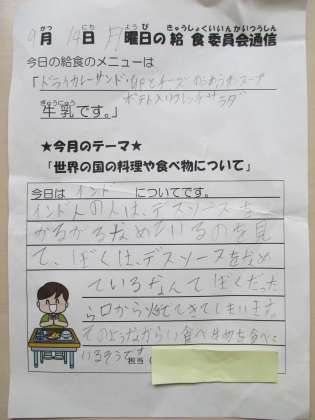 9月14日月曜日の給食委員会通信
今日の給食のメニューは
「ドライカレーサンド・
ポテト入りフレンチサラダ
牛乳です。」
★今月のテーマ★
「世界の国の料理や食べ物について」
今日は インド についてです。
インド人の人は、デスソースを
かるがるなめているのを見
て、ぼくは、デスソースをなめ
ているなんてぼくだった
ら口から火がでてきてしまいます。
そのようなからい食べ生めを食べて
いるそうです
担当(